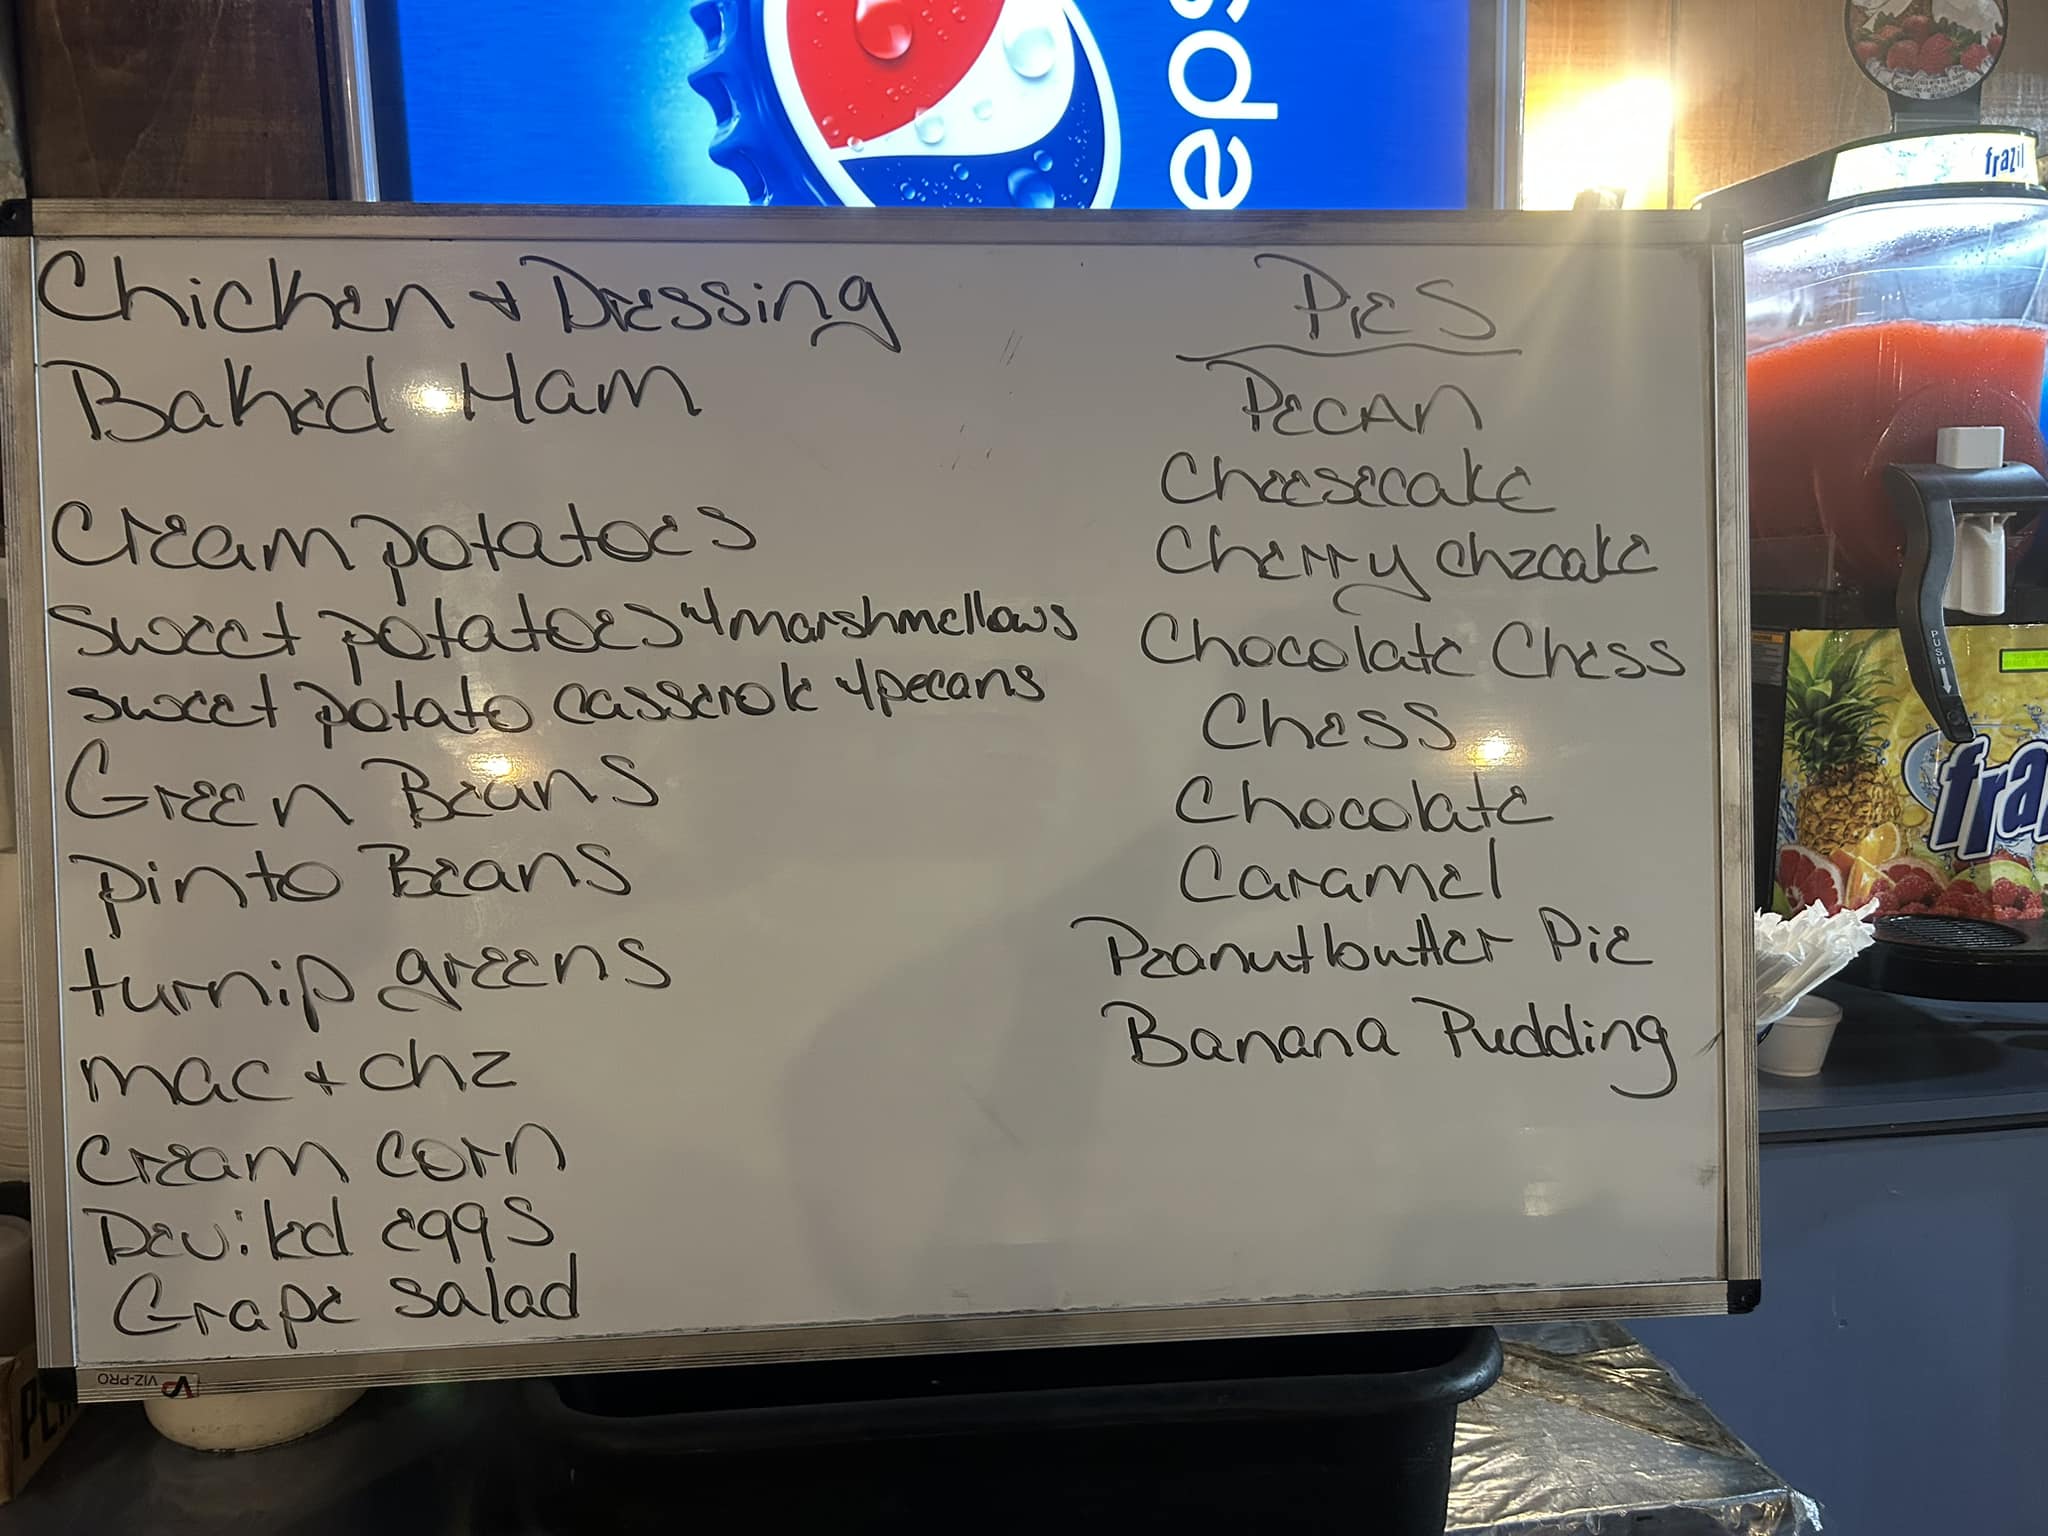 eps
frazil
Chicken & Dressing
Baked Ham
Cream potatoes
sweet potatoes w/marshmellows
sweet potato casserole w/pecans
Green Beans
pinto Beans
turnip greens
mac & chz
cream corn
Deviled eggs
Grape salad
Pies
Pecan
Cheesecake
Cherry chzcake
Chocolate Chess
Chess
Chocolate
Caramel
Peanutbutter Pie
Banana Pudding
PUSH
fra
VIZ-PRO